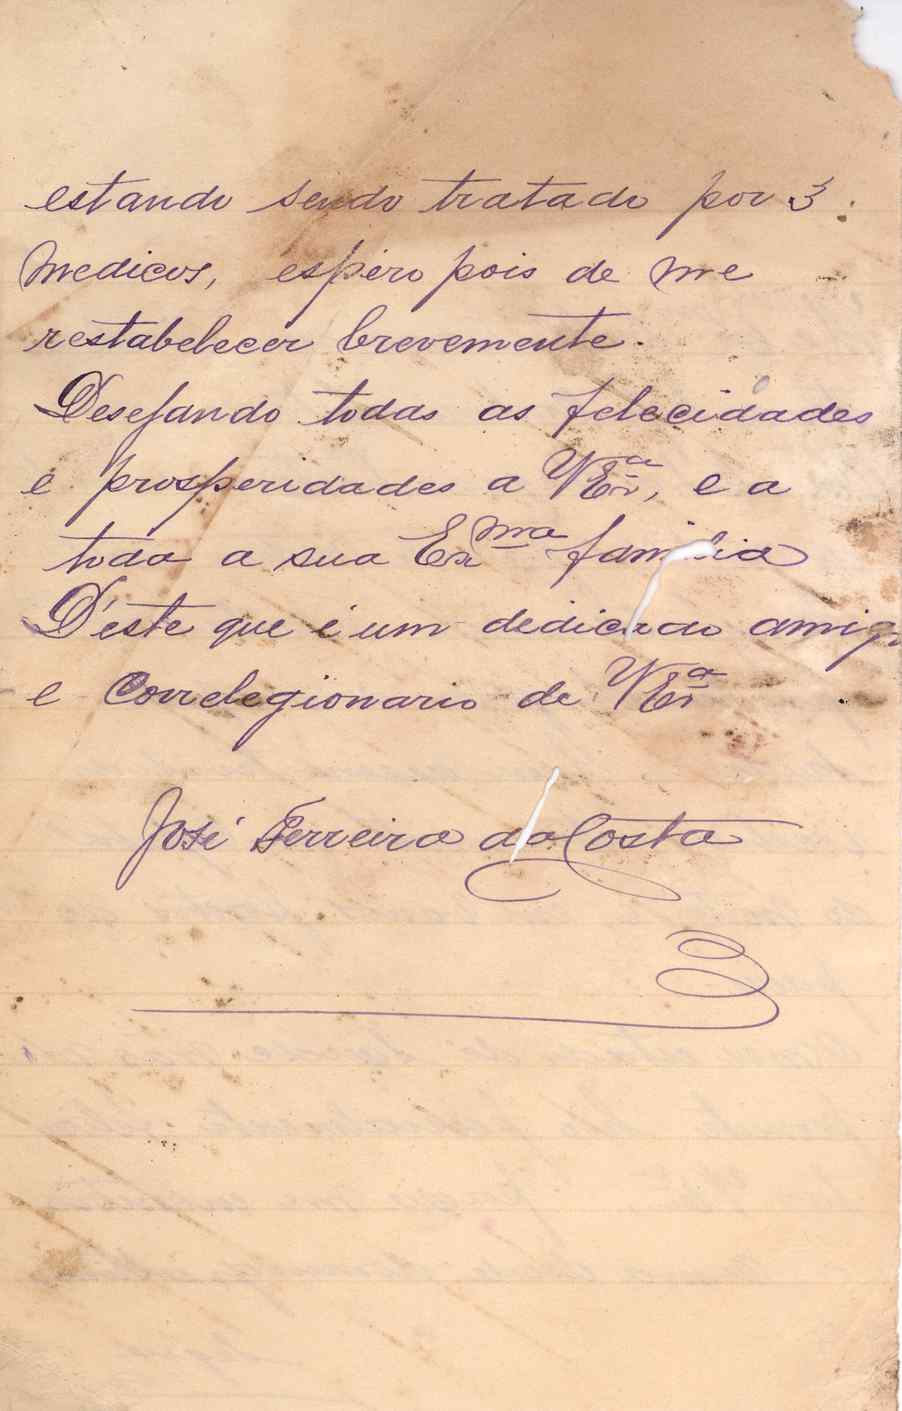 estando sendo tratado por 3
medicos, espero pois de me
restabelecer brevemente.
Desejando todas as felecidades
e prosperidades a V Exª, e a
toda a sua Exma familia
D'este que é um dedicado amigo
e Correlegionario de V Exª
José Ferreira da Costa